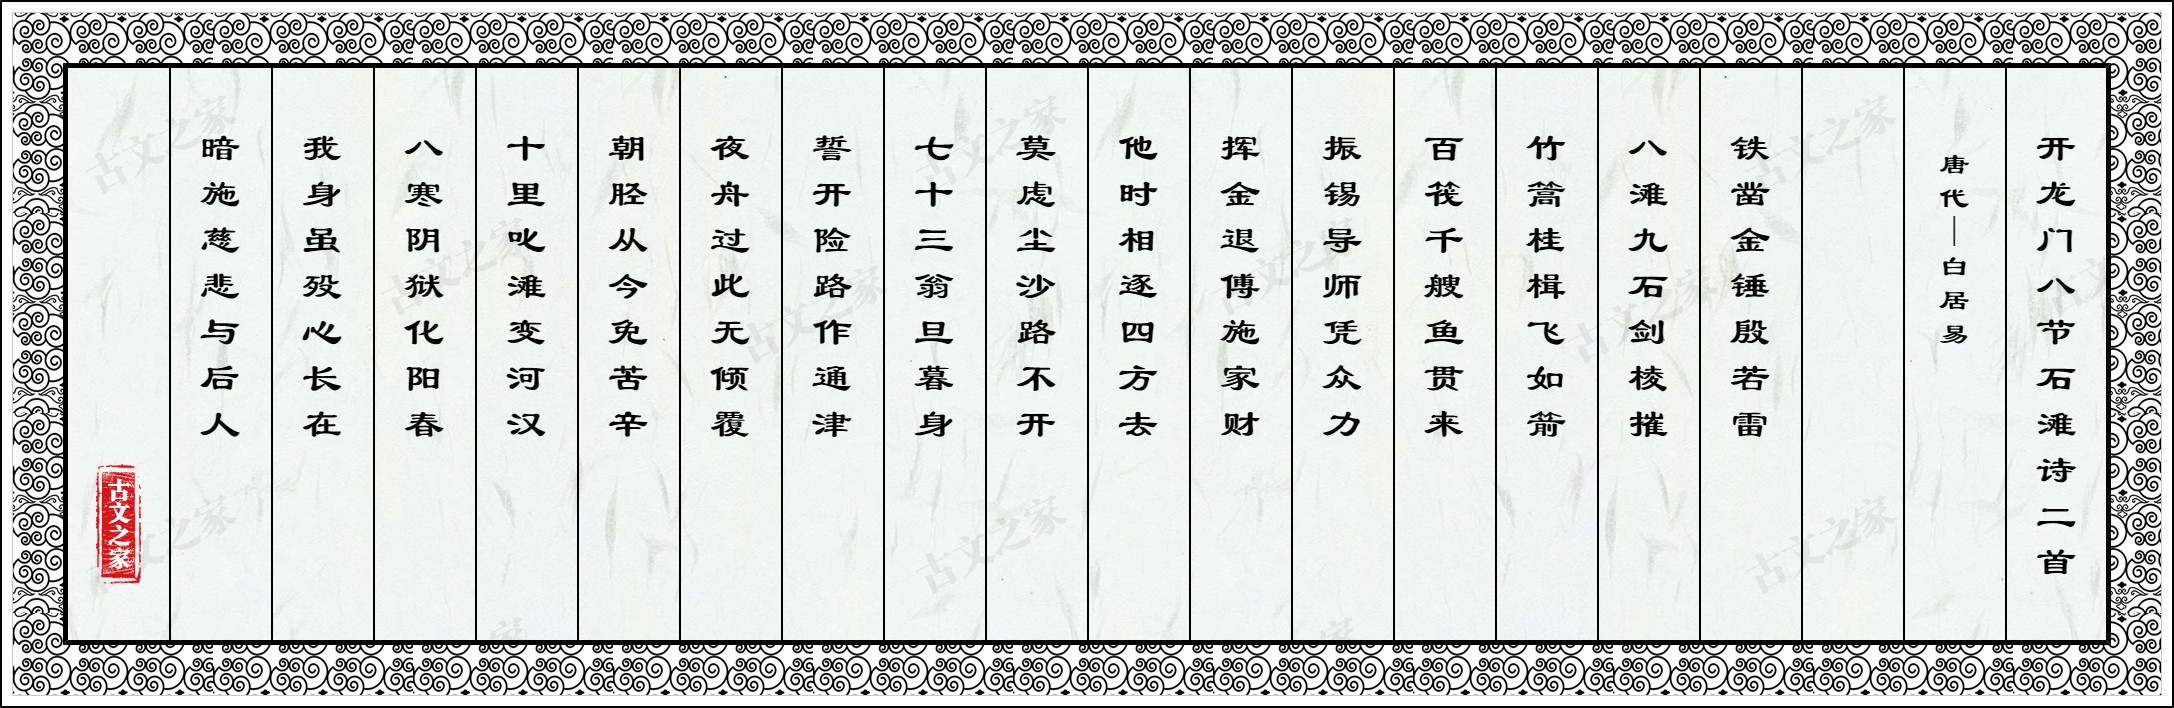 开龙门八节石滩诗二首
唐代—白居易
铁凿金锤殷若雷
八滩九石剑棱摧
竹篙桂楫飞如箭
百筏千艘鱼贯来
振锡导师凭众力
挥金退傅施家财
他时相逐四方去
莫虑尘沙路不开
七十三翁旦暮身
誓开险路作通津
夜舟过此无倾覆
朝胫从今免苦辛
十里叱滩变河汉
八寒阴狱化阳春
我身虽殁心长在
暗施慈悲与后人
古文之家